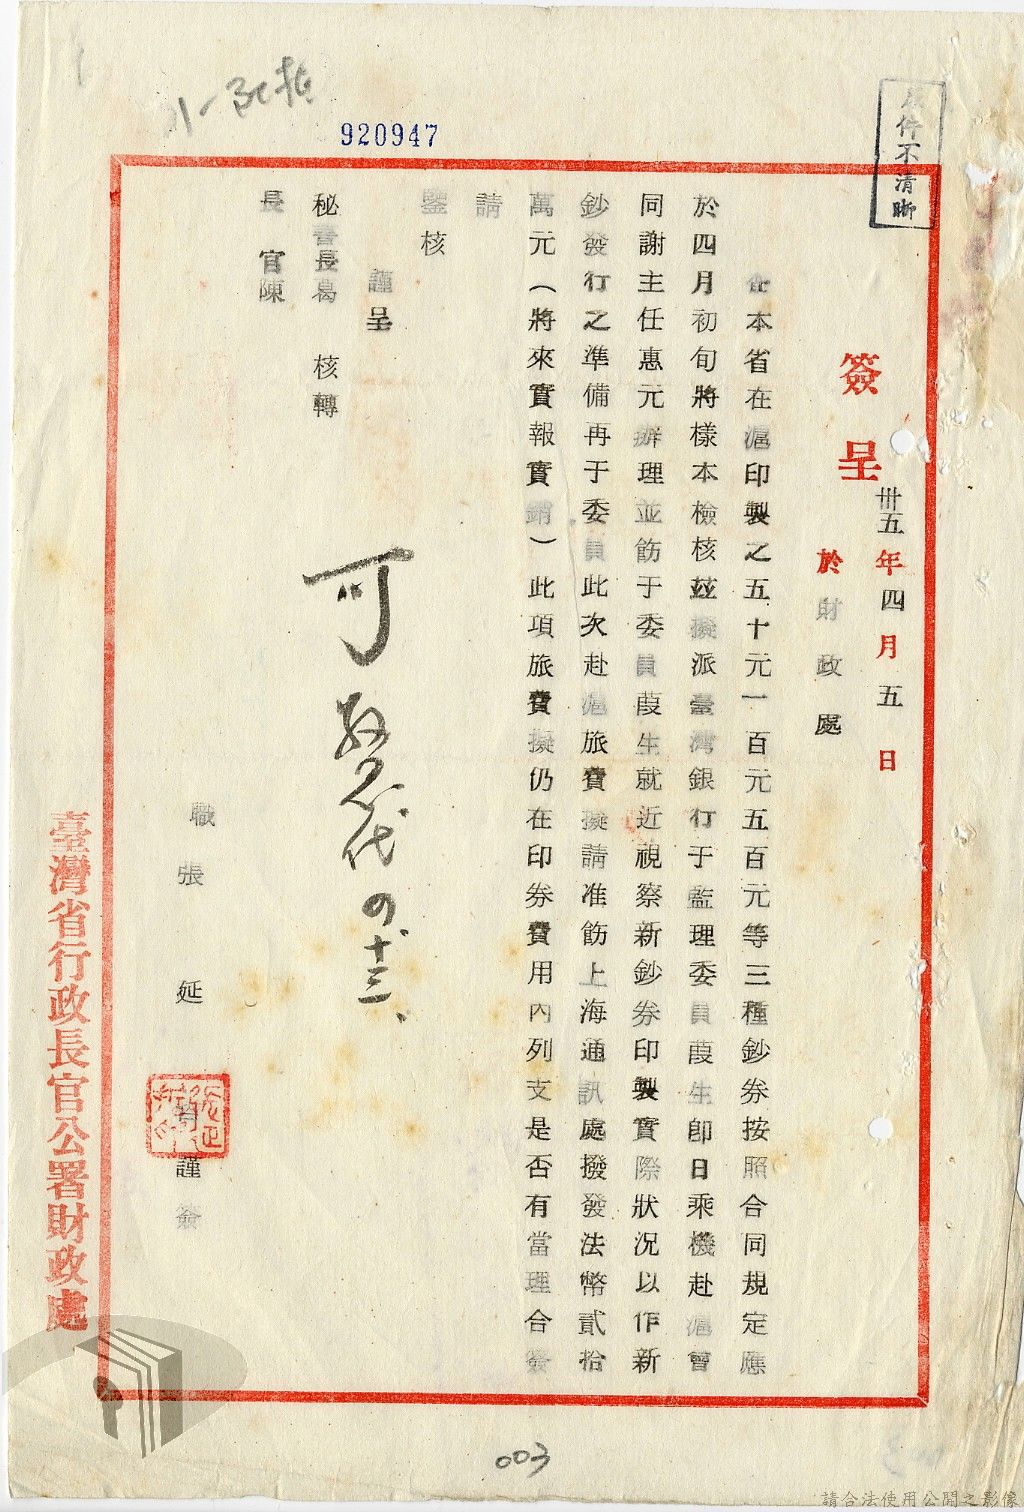 920947
原件不清晰
簽呈
卅五年四月五日
於財政處
查本省在滬印製之五十元一百元五百元等三種鈔券按照合同規定應
於四月初旬將樣本檢核茲擬派臺灣銀行于監理委員葭生卽日乘機赴滬會
同謝主任惠元辦理並飭于委員葭生就近視察新鈔券印製實際狀況以作新
鈔發行之準備再于委員此次赴滬旅費擬請准飭上海通訊處撥發法幣貳拾
萬元（將來實報實銷）此項旅費擬仍在印券費用內列支是否有當理合簽
請
鑒核
謹呈
秘書長葛 核轉
長官陳
可
代
四 十三、
職張延哲謹簽
臺灣省行政長官公署財政處
003
請合法使用公開之影像